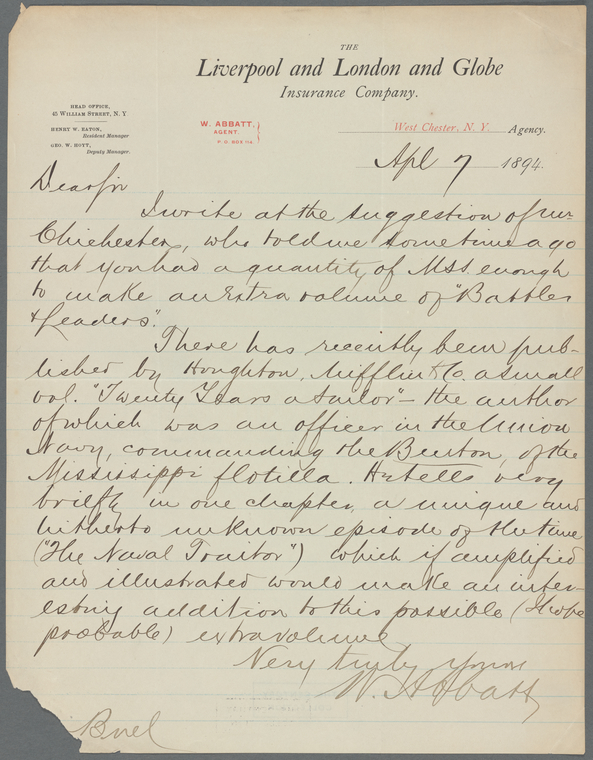 THE
Liverpool and London and Globe
Insurance Company.
HEAD OFFICE,
45 WILLIAM STREET, N. Y
HENRY W. EATON,
Resident Manager
GEO. W. HOYT,
Deputy Manager.
W. ABBATT,
AGENT.
P. O. BOX
West Chester, N. Y. Agency.
Apl 7 1894.
Dear Sir
I write at the suggestion of Mr
Chichester, who told me sometime ago
that you had a quantity of MSS. enough
to make an Extra volume of "Battles
& Leaders".
There has recently been pub-
lished by Houghton, Mifflin & Co. a small
vol. "Twenty Years a Sailor" — the author
of which was an officer in the Union
Navy, commanding the Benton, of the
Mississippi flotilla. He tells very
briefly in one chapter, a unique and
hitherto unknown episode of the time
("The Naval Traitor") which if amplified
and illustrated would make an inter-
esting addition to this possible (I hope
probable) extra volume
Very truly yours
W. Abbatt
Buel